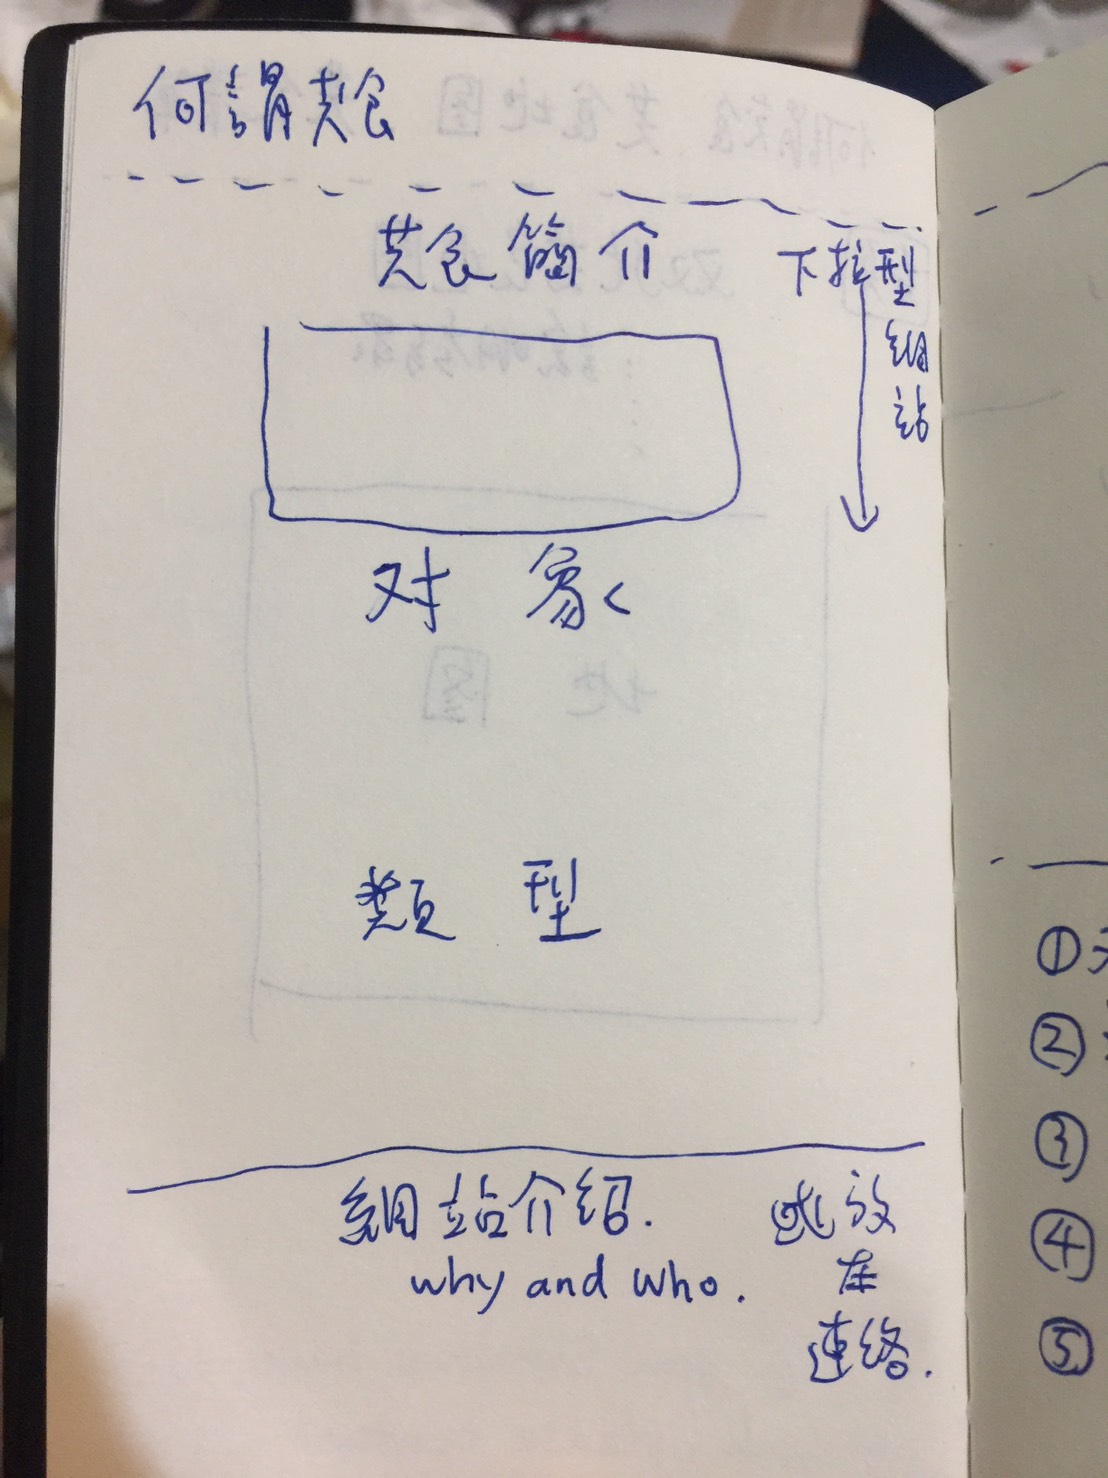 何謂美食
美食簡介
下拉型
網
站
对象
類型
網站介紹.
why and who.
或放
在
連絡.
①
②
③
④
⑤